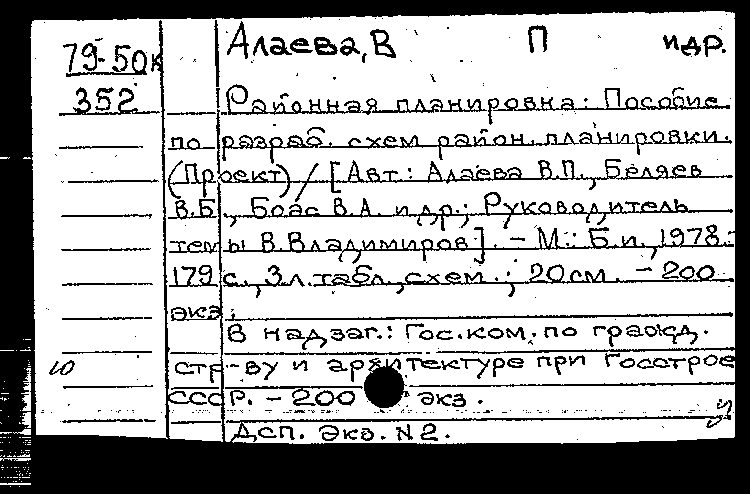 79-50к
352
Алаева, В П и др.
Районная планировка: Пособие
по разраб. схем район. планировки.
(Проект) / [Авт.: Алаева В.П., Беляев
В.Б., Боас В.А. и др.; Руководитель
темы В.Владимиров]. – М.: Б.и., 1978.-
179 с., 3 л. табл., схем.; 20 см. – 200
экз.
В надзаг.: Гос. ком. по гражд.
стр-ву и архитектуре при Госстрое
СССР. – 200 экз.
Дсп. Экз. N2.